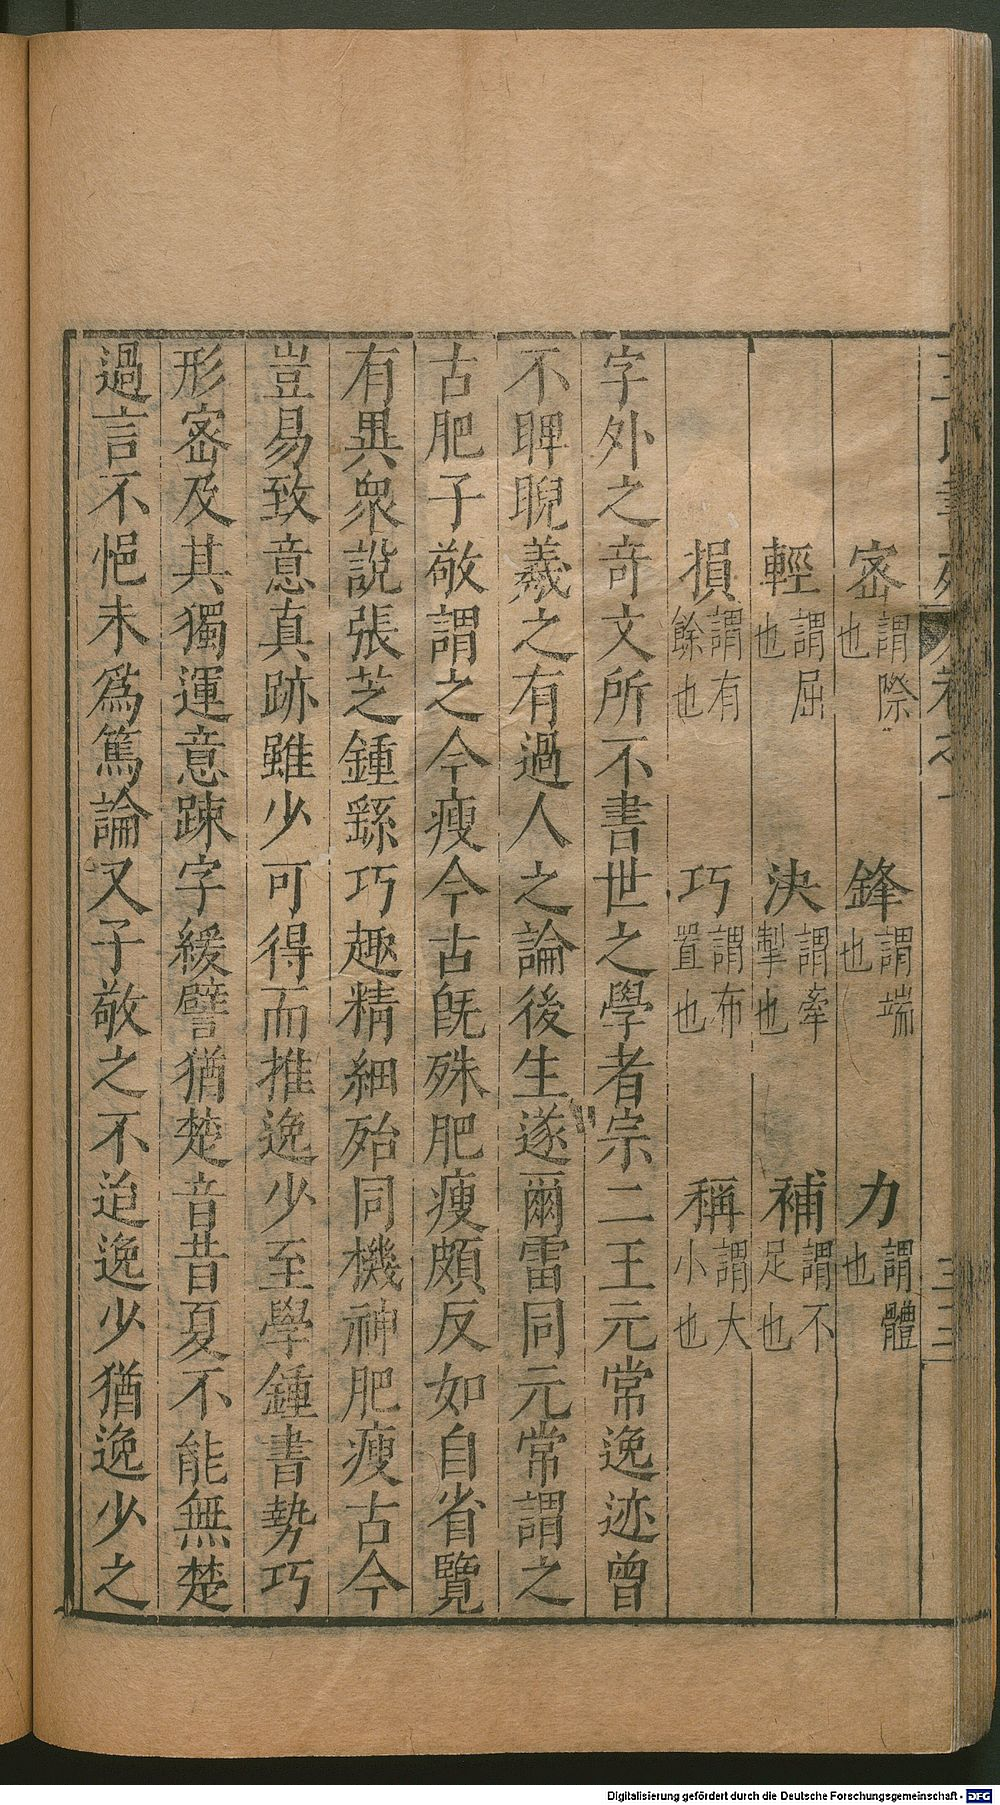 密謂際也 鋒謂端也 力謂體也
輕謂屈也 決謂牽掣也 補謂不足也
損謂有餘也 巧謂布置也 稱謂大小也
字外之竒文所不書世之學者宗二王元常逸迹曾
不睥睨羲之有過人之論後生遂爾雷同元常謂之
古肥子敬謂之今瘦今古旣殊肥瘦頗反如自省覽
有異衆說張芝鍾繇巧趣精細殆同機神肥瘦古今
豈易致意真跡雖少可得而推逸少至學鍾書勢巧
形密及其獨運意踈字緩譬猶楚音昔夏不能無楚
過言不悒未爲篤論又子敬之不迨逸少猶逸少之
Digitalisierung gefördert durch die Deutsche Forschungsgemeinschaft - DFG